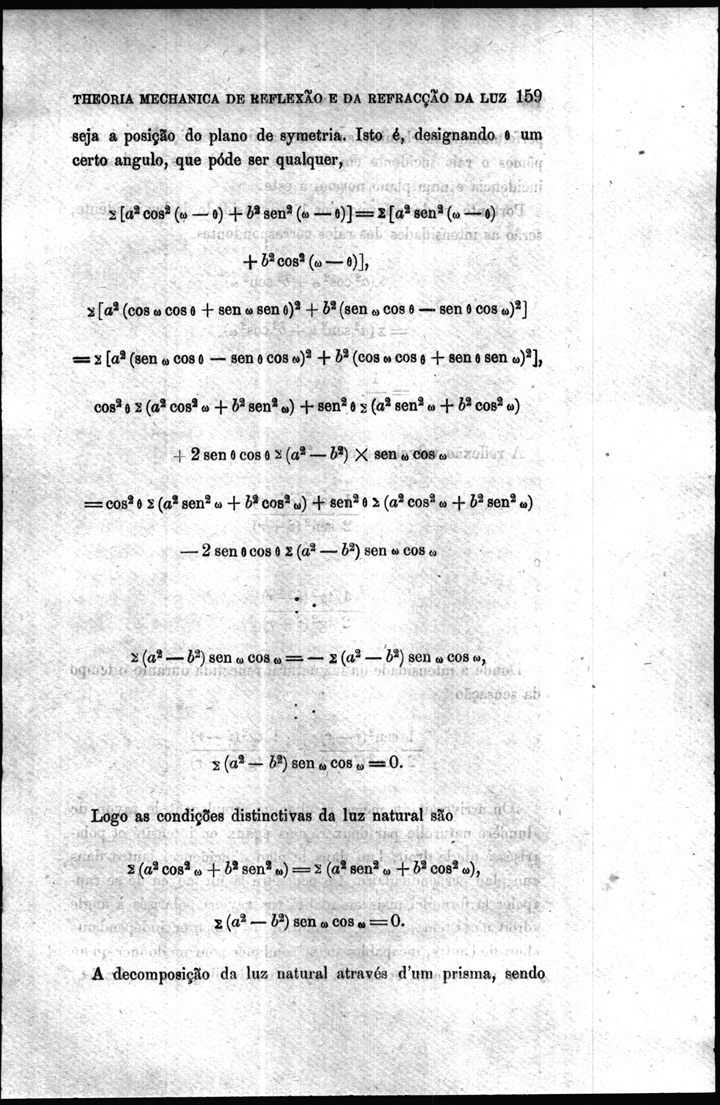 THEORIA MECHANICA DE REFLEXÃO E DA REFRACÇÃO DA LUZ 159
seja a posição do plano de symetria. Isto é, designando θ um
certo angulo, que póde ser qualquer,
Σ [a² cos² (ω — θ) + b² sen² (ω — θ)] = Σ [a² sen² (ω — θ)
+ b² cos² (ω — θ)],
Σ [a² (cos ω cos θ + sen ω sen θ)² + b² (sen ω cos θ — sen θ cos ω)²]
= Σ [a² (sen ω cos θ — sen θ cos ω)² + b² (cos ω cos θ + sen θ sen ω)²],
cos² θ Σ (a² cos² ω + b² sen² ω) + sen² θ Σ (a² sen² ω + b² cos² ω)
+ 2 sen θ cos θ Σ (a² — b²) × sen ω cos ω
= cos² θ Σ (a² sen² ω + b² cos² ω) + sen² θ Σ (a² cos² ω + b² sen² ω)
— 2 sen θ cos θ Σ (a² — b²) sen ω cos ω
∴
Σ (a² — b²) sen ω cos ω = — Σ (a² — b²) sen ω cos ω,
∴
Σ (a² — b²) sen ω cos ω = 0.
Logo as condições distinctivas da luz natural são
Σ (a² cos² ω + b² sen² ω) = Σ (a² sen² ω + b² cos² ω),
Σ (a² — b²) sen ω cos ω = 0.
A decomposição da luz natural através d'um prisma, sendo